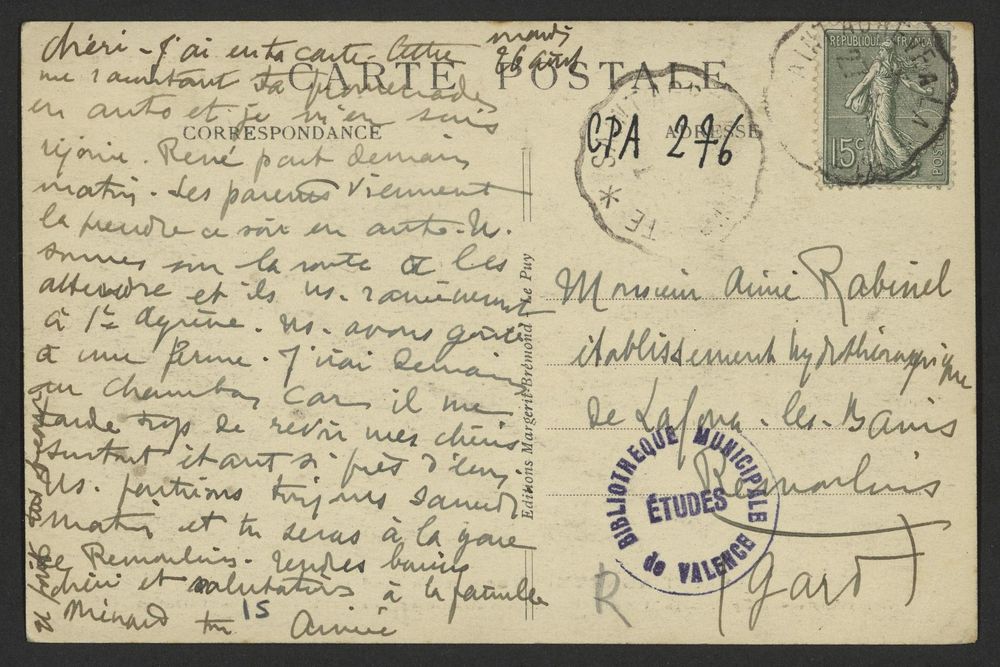 CARTE POSTALE
CORRESPONDANCE
ADRESSE
mardi
26 août
chéri - J'ai eu ta carte-lettre
me racontant ta promenade
en auto et je m'en suis
réjouie. René part demain
matin. Les parents viennent
la prendre ce soir en auto. Ns.
sommes sur la route à les
attendre et ils ns. ramèneront
à
Ns. avons goûté
à une ferme. J'irai demain
au Chambon car il me
tarde trop de revoir mes chéris
surtout étant si près d'eux.
Ns. partirons toujours samedi
matin et tu seras à la gare
de Remoulins. Tendres baisers
chéri et salutations à la famille
Ménard ton Aimée
15
CPA 276
RÉPUBLIQUE FRANÇAISE
15c
POSTES
Monsieur Aimé Rabinel
établissement hydrothérapique
de Lafoux-les-Bains
Remoulins
(Gard)
Editions Margerit-Brémond - Le Puy
BIBLIOTHEQUE MUNICIPALE
ÉTUDES
de VALENCE
R